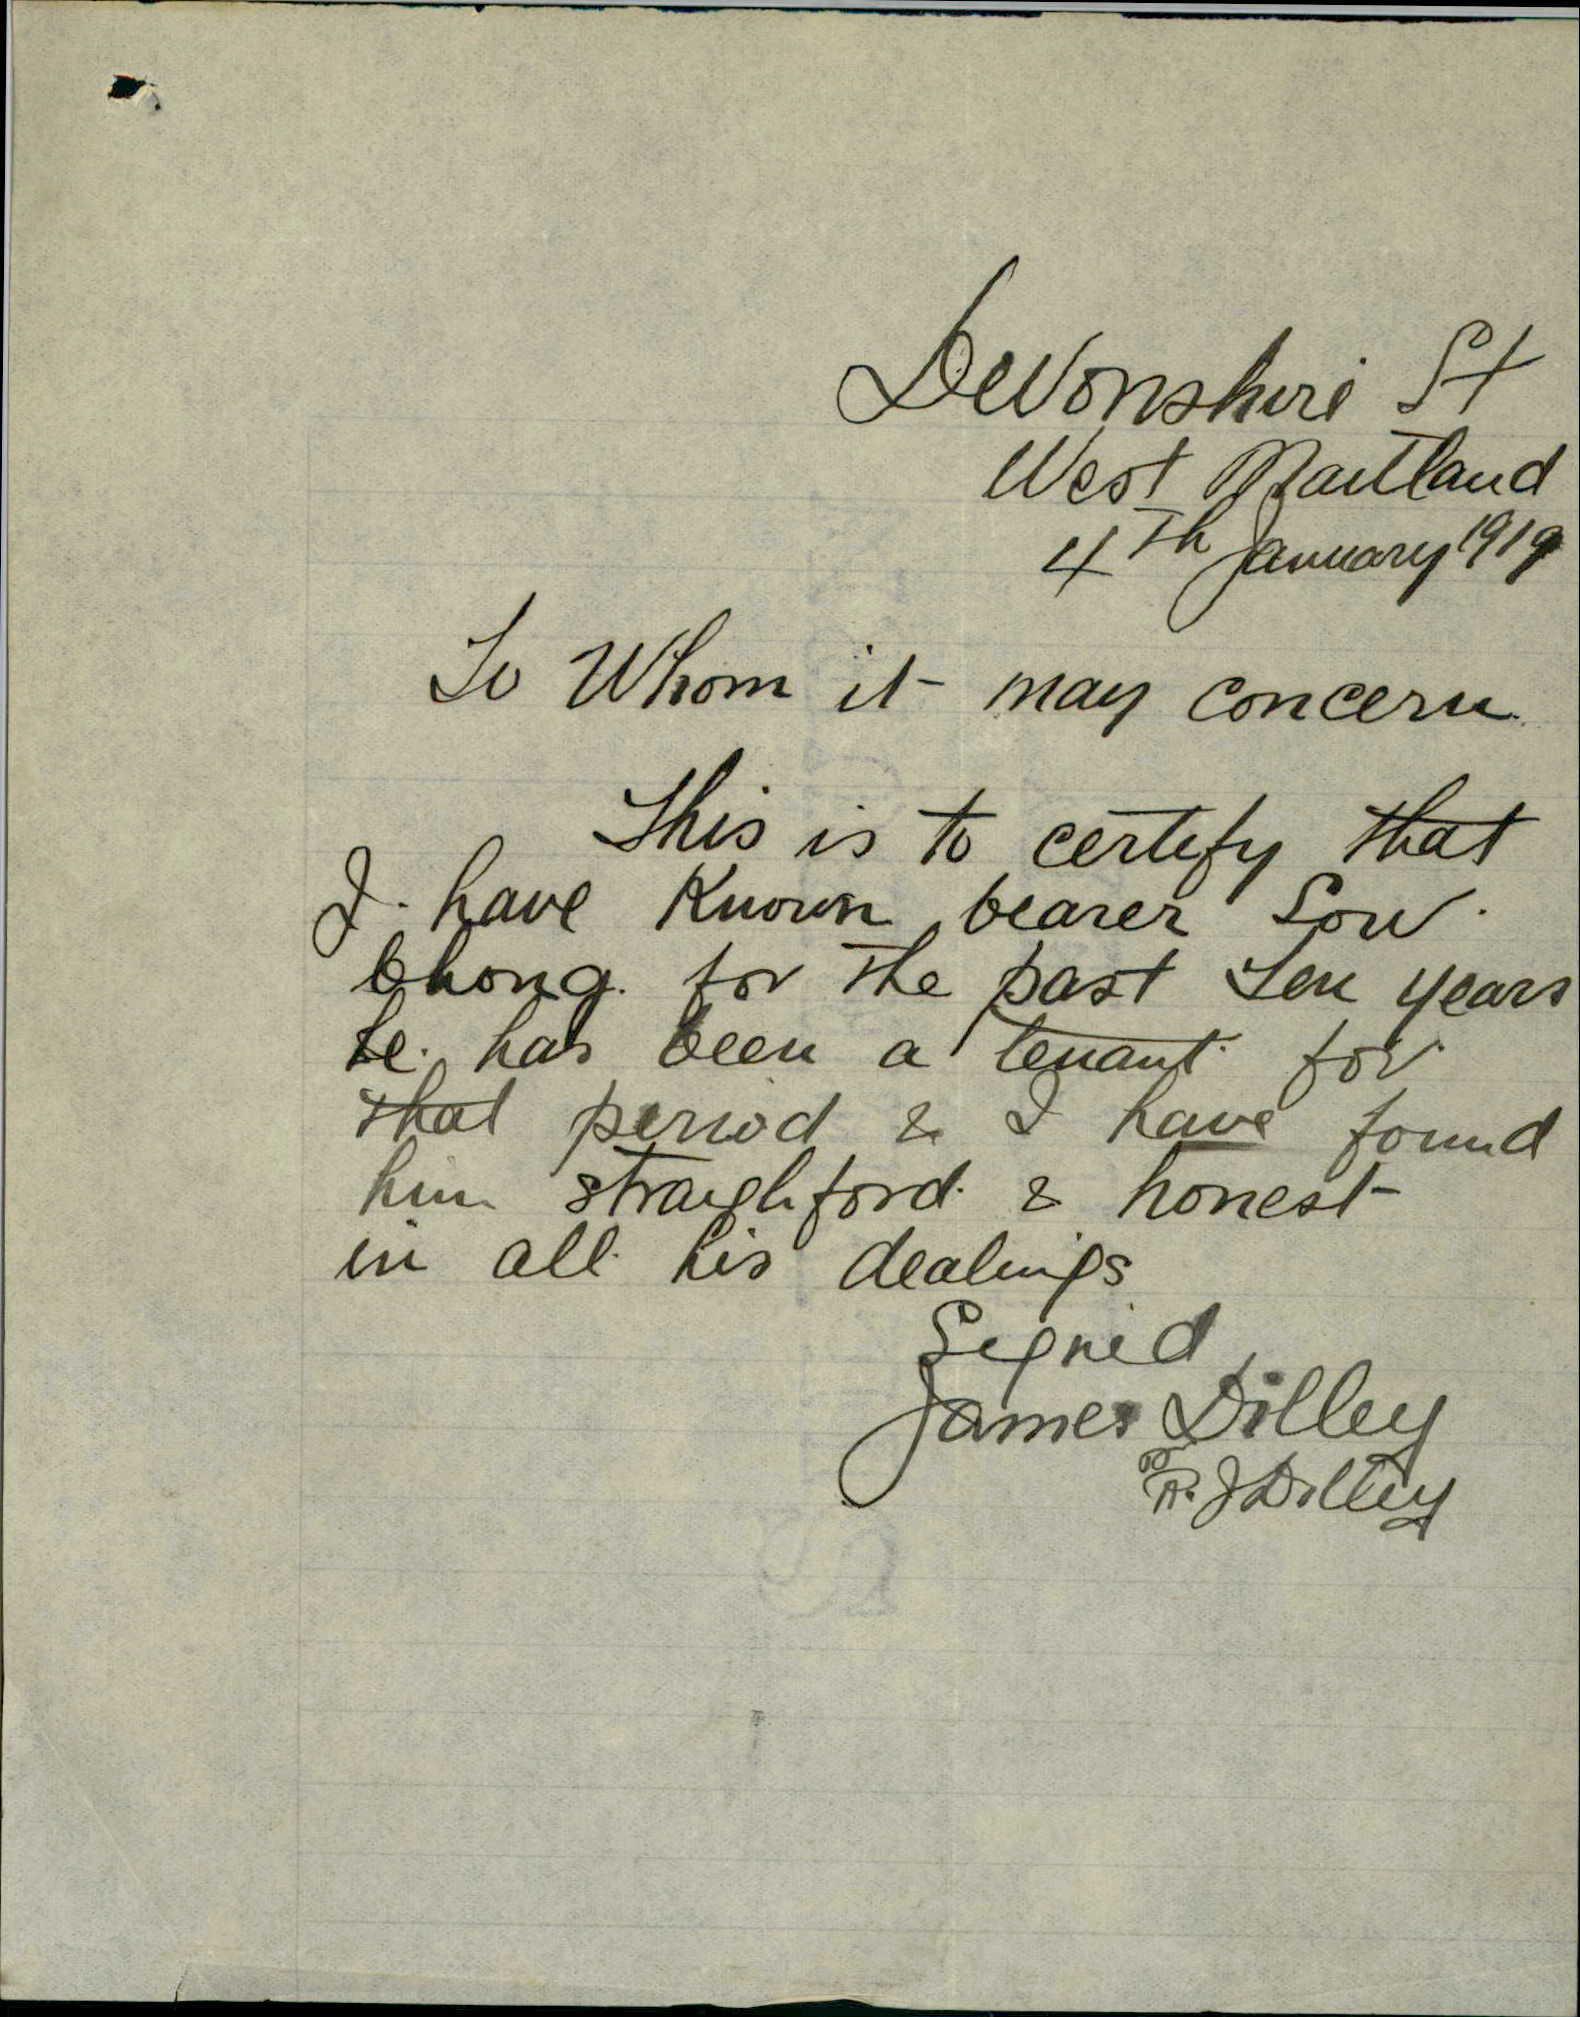 Devonshire St
West Maitland
4Th January 1919
To Whom it may concern.
This is to certify that
I have Known bearer Sow
Chong. for the past Ten years
he has been a tenant for
that period & I have found
him straighford & honest
in all his dealings
Signed
James Dilley
R. J Dilley